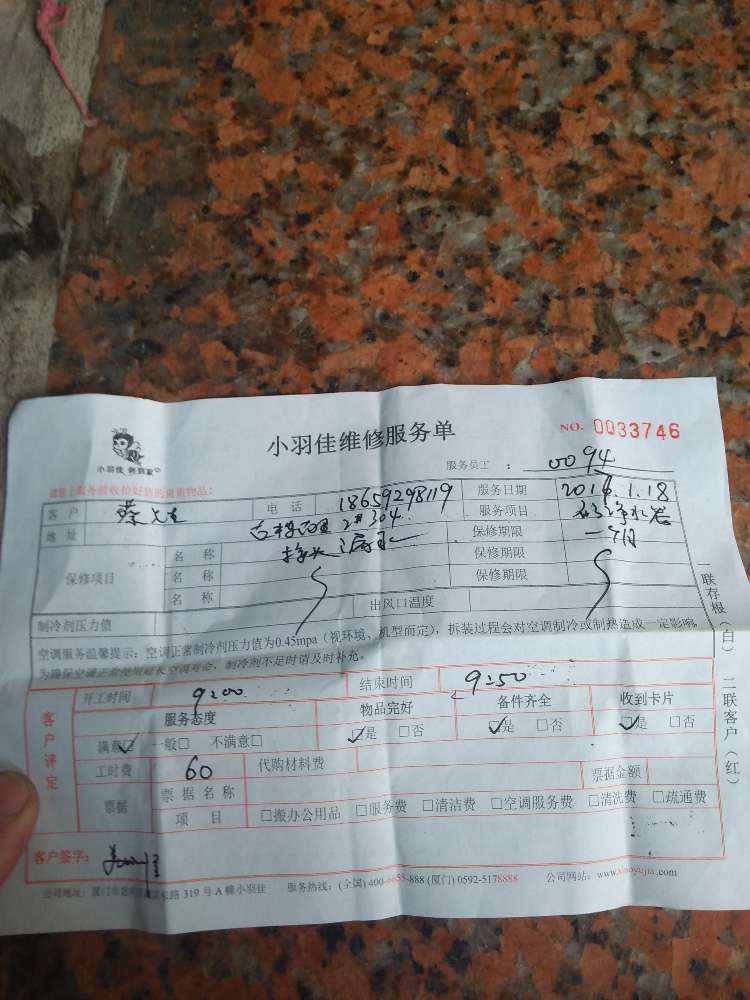 小羽佳维修服务单
NO. 0033746
小羽佳
服务员工 : 0094
客户 蔡先生 电话 18659298119 服务日期 2016.1.18
地址 2#304 服务项目 净水器
保修项目 名称 接头漏水 保修期限 一个月
名称 保修期限
名称 保修期限
制冷剂压力值 出风口温度
空调服务温馨提示:空调正常制冷剂压力值为0.45mpa(视环境、机型而定),拆装过程会对空调制冷或制热造成一定影响,
为确保空调正常使用延长空调寿命,制冷剂不足时请及时补充。
客户评定
开工时间 9:00 结束时间 9:50
服务态度 物品完好 备件齐全 收到卡片
满意☑ 一般□ 不满意□ ☑是 □否 ☑是 □否 ☑是 □否
工时费 60 代购材料费
票据 票据名称 票据金额
项目 □搬办公用品 □服务费 □清洁费 □空调服务费 □清洗费 □疏通费
客户签字:
319号A幢小羽佳 服务热线:(全国)400-6655-888 (厦门) 0592-5178888 公司网站:www.xiaoyujia.com
一联存根(白) 二联客户(红)